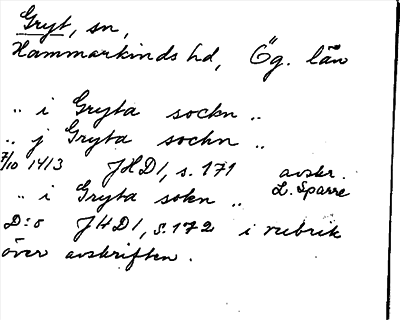 Gryt, sn,
Hammarkinds hd, Ög. län
„ i Gryta sockn „
„ j Gryta sochn „
7/10 1413 JHD1, s. 171 avskr.
L. Sparre
„ i Gryta sokn „
D:o JHD1, s. 172 i rubrik
över avskriften.